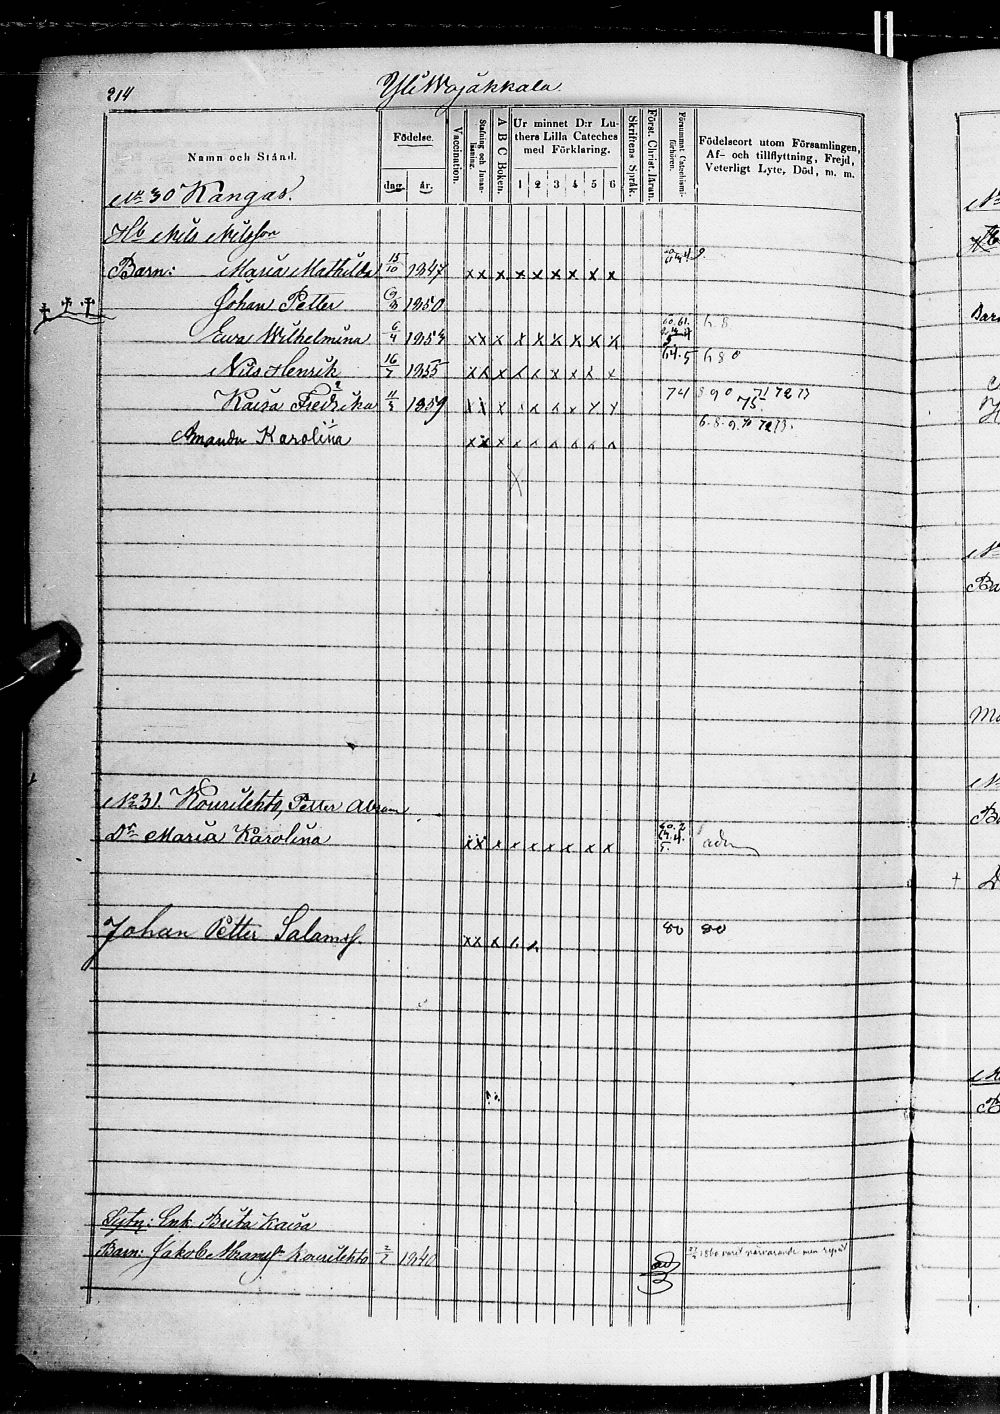 214 Yli Wojakkala
Namn och Stånd.
Födelse.
dag. år.
Vaccination.
Stafning och Innanläsning.
A B C Boken.
Ur minnet D:r Luthers Lilla Cateches med Förklaring.
1 2 3 4 5 6
Skriftens Språk.
Först. Christ. läran.
Försummt Catechismiförhören.
Födelseort utom Församlingen,
Af- och tillflyttning, Frejd,
Veterligt Lyte, Död, m. m.
No 30 Kangas.
Hb Nils Nilsson
Barn: Maria Mathilda 13/10 1847 x x x x x x x x x
Johan Petter 9/3 1850
Ewa Wilhelmina 6/4 1853 x x x x x x x x x 60. 61.
Nils Henrik 16/7 1855 x x x x x x x x x 64.5 680
Kaisa Fredrika 11/3 1859 x x x x x x x x x 74 890 71 72 73
75.
Amanda Karolina x x x x x x x x x 6.8.9.70 72 73.
No 31. Kourilehto, Petter Abram
Dr Maria Karolina x x x x x x x x x
Johan Petter Salamsf. x x x x x 80 80
Sytn: Enk. Brita Kaisa
Barn: Jakob Abramsf Kourilehto 2/2 1840 1860 varit närvarande men